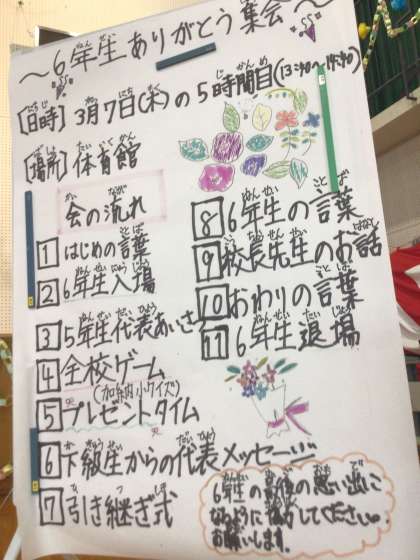 ～6年生ありがとう集会～
[日時] 3月7日(木)の5時間目(13:40～14:40)
[場所] 体育館
会の流れ
1 はじめの言葉
2 6年生入場
3 5年生代表あいさつ
4 全校ゲーム
(加納小クイズ)
5 プレゼントタイム
6 下級生からの代表メッセージ
7 引き継ぎ式
8 6年生の言葉
9 校長先生のお話
10 おわりの言葉
11 6年生退場
6年生の最後の思い出に
なるように協力してください。
お願いします